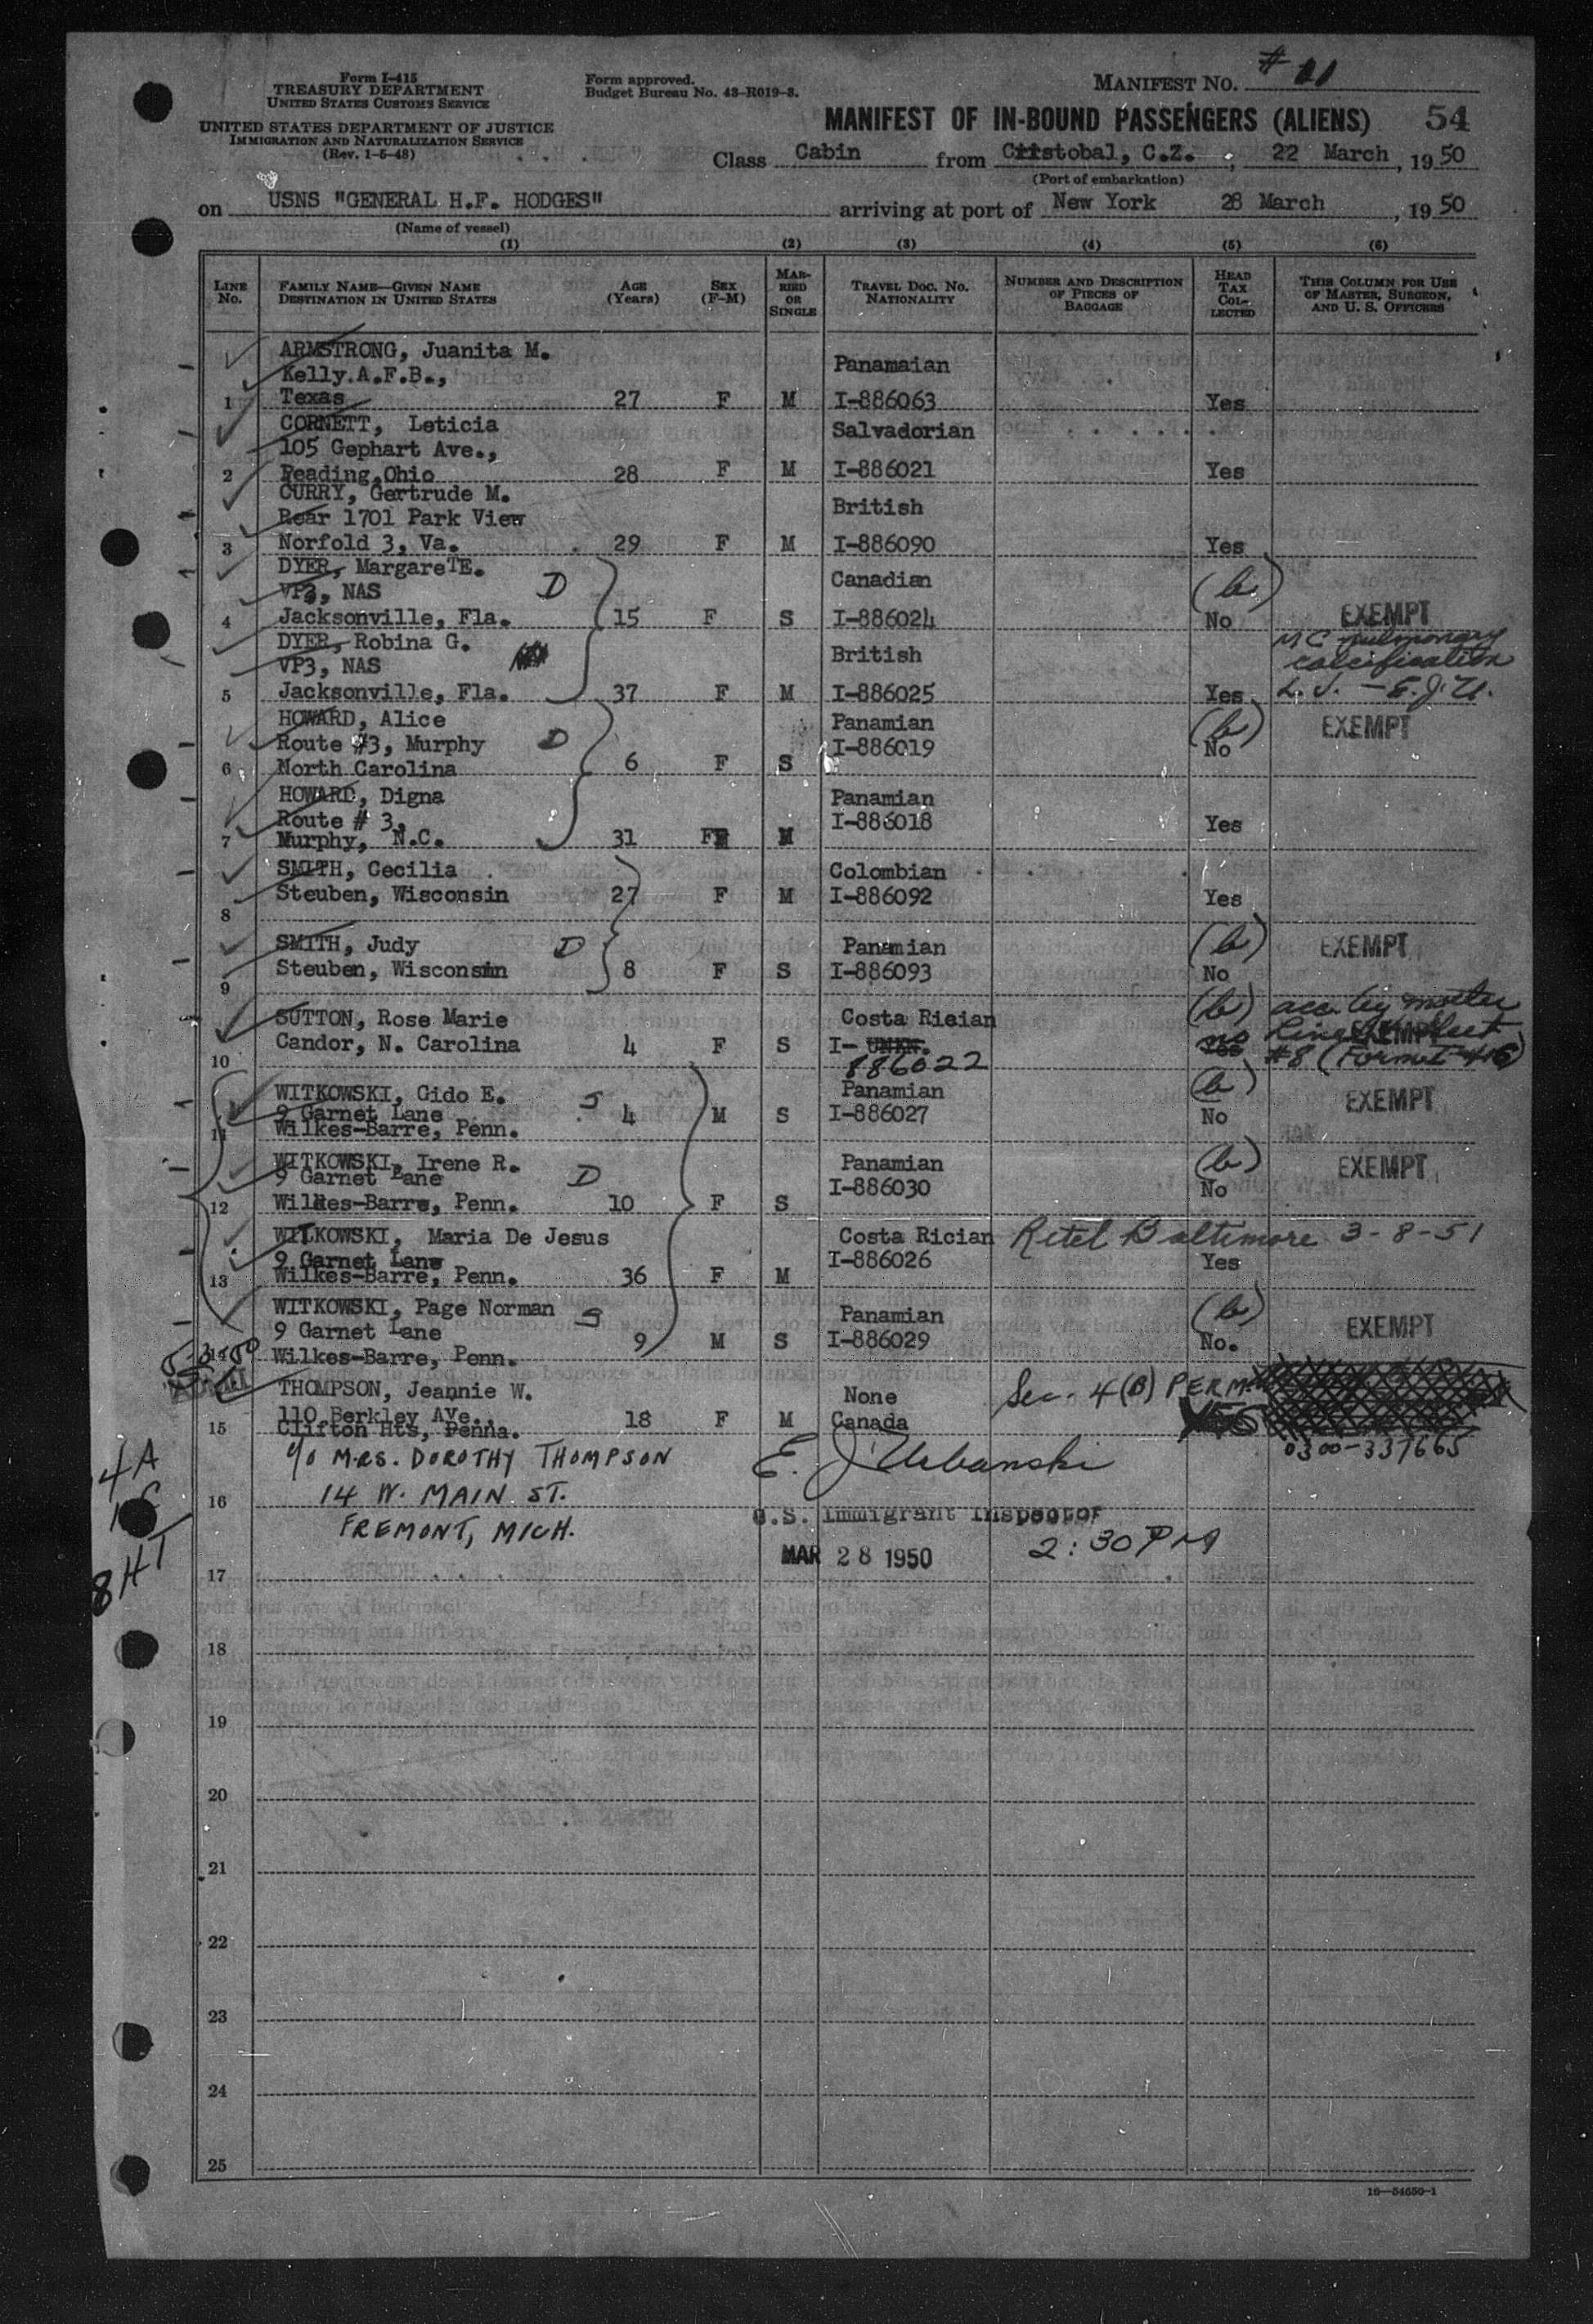 Form I-415
TREASURY DEPARTMENT
UNITED STATES CUSTOMS SERVICE
UNITED STATES DEPARTMENT OF JUSTICE
IMMIGRATION AND NATURALIZATION SERVICE
(Rev. 1-5-48)
Form approved.
Budget Bureau No. 43-R019-3.
MANIFEST NO. # 11
MANIFEST OF IN-BOUND PASSENGERS (ALIENS) 54
Class Cabin from Cristobal, C.Z. , 22 March , 19 50
(Port of embarkation)
on USNS "GENERAL H.F. HODGES" arriving at port of New York 28 March , 19 50
(Name of vessel)
(1) (2) (3) (4) (5) (6)
LINE No. FAMILY NAME—GIVEN NAME DESTINATION IN UNITED STATES AGE (Years) SEX (F-M) MARRIED OR SINGLE TRAVEL DOC. NO. NATIONALITY NUMBER AND DESCRIPTION OF PIECES OF BAGGAGE HEAD TAX COLLECTED THIS COLUMN FOR USE OF MASTER, SURGEON, AND U. S. OFFICERS
ARMSTRONG, Juanita M.
Kelly.A.F.B., Panamaian
1 Texas 27 F M I-886063 Yes
CORNETT, Leticia Salvadorian
105 Gephart Ave.,
2 Reading,Ohio 28 F M I-886021 Yes
CURRY, Gertrude M.
Rear 1701 Park View British
3 Norfold 3, Va. 29 F M I-886090 Yes
DYER, MargareTE.
VP3, NAS D Canadian (b)
4 Jacksonville, Fla. 15 F S I-886024 No EXEMPT
DYER, Robina G. MC pulmonary
VP3, NAS British calcification
5 Jacksonville, Fla. 37 F M I-886025 Yes L. J. — E.J.U.
HOWARD, Alice Panamian (b) EXEMPT
Route #3, Murphy D I-886019 No
6 North Carolina 6 F S
HOWARD, Digna Panamian
Route # 3, I-886018 Yes
7 Murphy, N.C. 31 F M
SMITH, Cecilia Colombian
Steuben, Wisconsin 27 F M I-886092 Yes
8
SMITH, Judy D Panamian (b) EXEMPT
Steuben, Wisconsin 8 F S I-886093 No
9
SUTTON, Rose Marie Costa Rician (b) acc. by mother
Candor, N. Carolina 4 F S I- UNKN. no Line Sheet EXEMPT
10 886022 #8 (Form I-416)
WITKOWSKI, Gido E. S Panamian (b) EXEMPT
9 Garnet Lane 4 M S I-886027 No
11 Wilkes-Barre, Penn.
WITKOWSKI, Irene R. Panamian (b) EXEMPT
9 Garnet Lane D I-886030 No
12 Wilkes-Barre, Penn. 10 F S
WITKOWSKI, Maria De Jesus Costa Rician Retel Baltimore 3-8-51
9 Garnet Lane I-886026 Yes
13 Wilkes-Barre, Penn. 36 F M
WITKOWSKI, Page Norman S Panamian (b) EXEMPT
9 Garnet Lane 9 M S I-886029 No.
14 Wilkes-Barre, Penn.
THOMPSON, Jeannie W. None Sec. 4(B) PERM
110 Berkley AVe., 18 F M Canada YES
15 Clifton Hts, Penna. 0300-337665
c/o MRS. DOROTHY THOMPSON E. J Urbanski
16 14 W. MAIN ST.
U.S. Immigrant Inspector
FREMONT, MICH. MAR 28 1950 2:30 PM
4A
8HT
17
18
19
20
21
22
23
24
25
16—54650-1